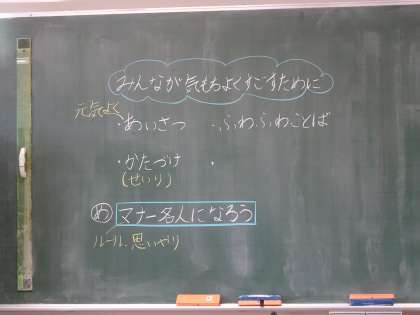 みんなが気もちよくすごすために
元気よく
・あいさつ ・ふわふわことば
・かたづけ ・
(せいり)
め マナー名人になろう
ルール、思いやり